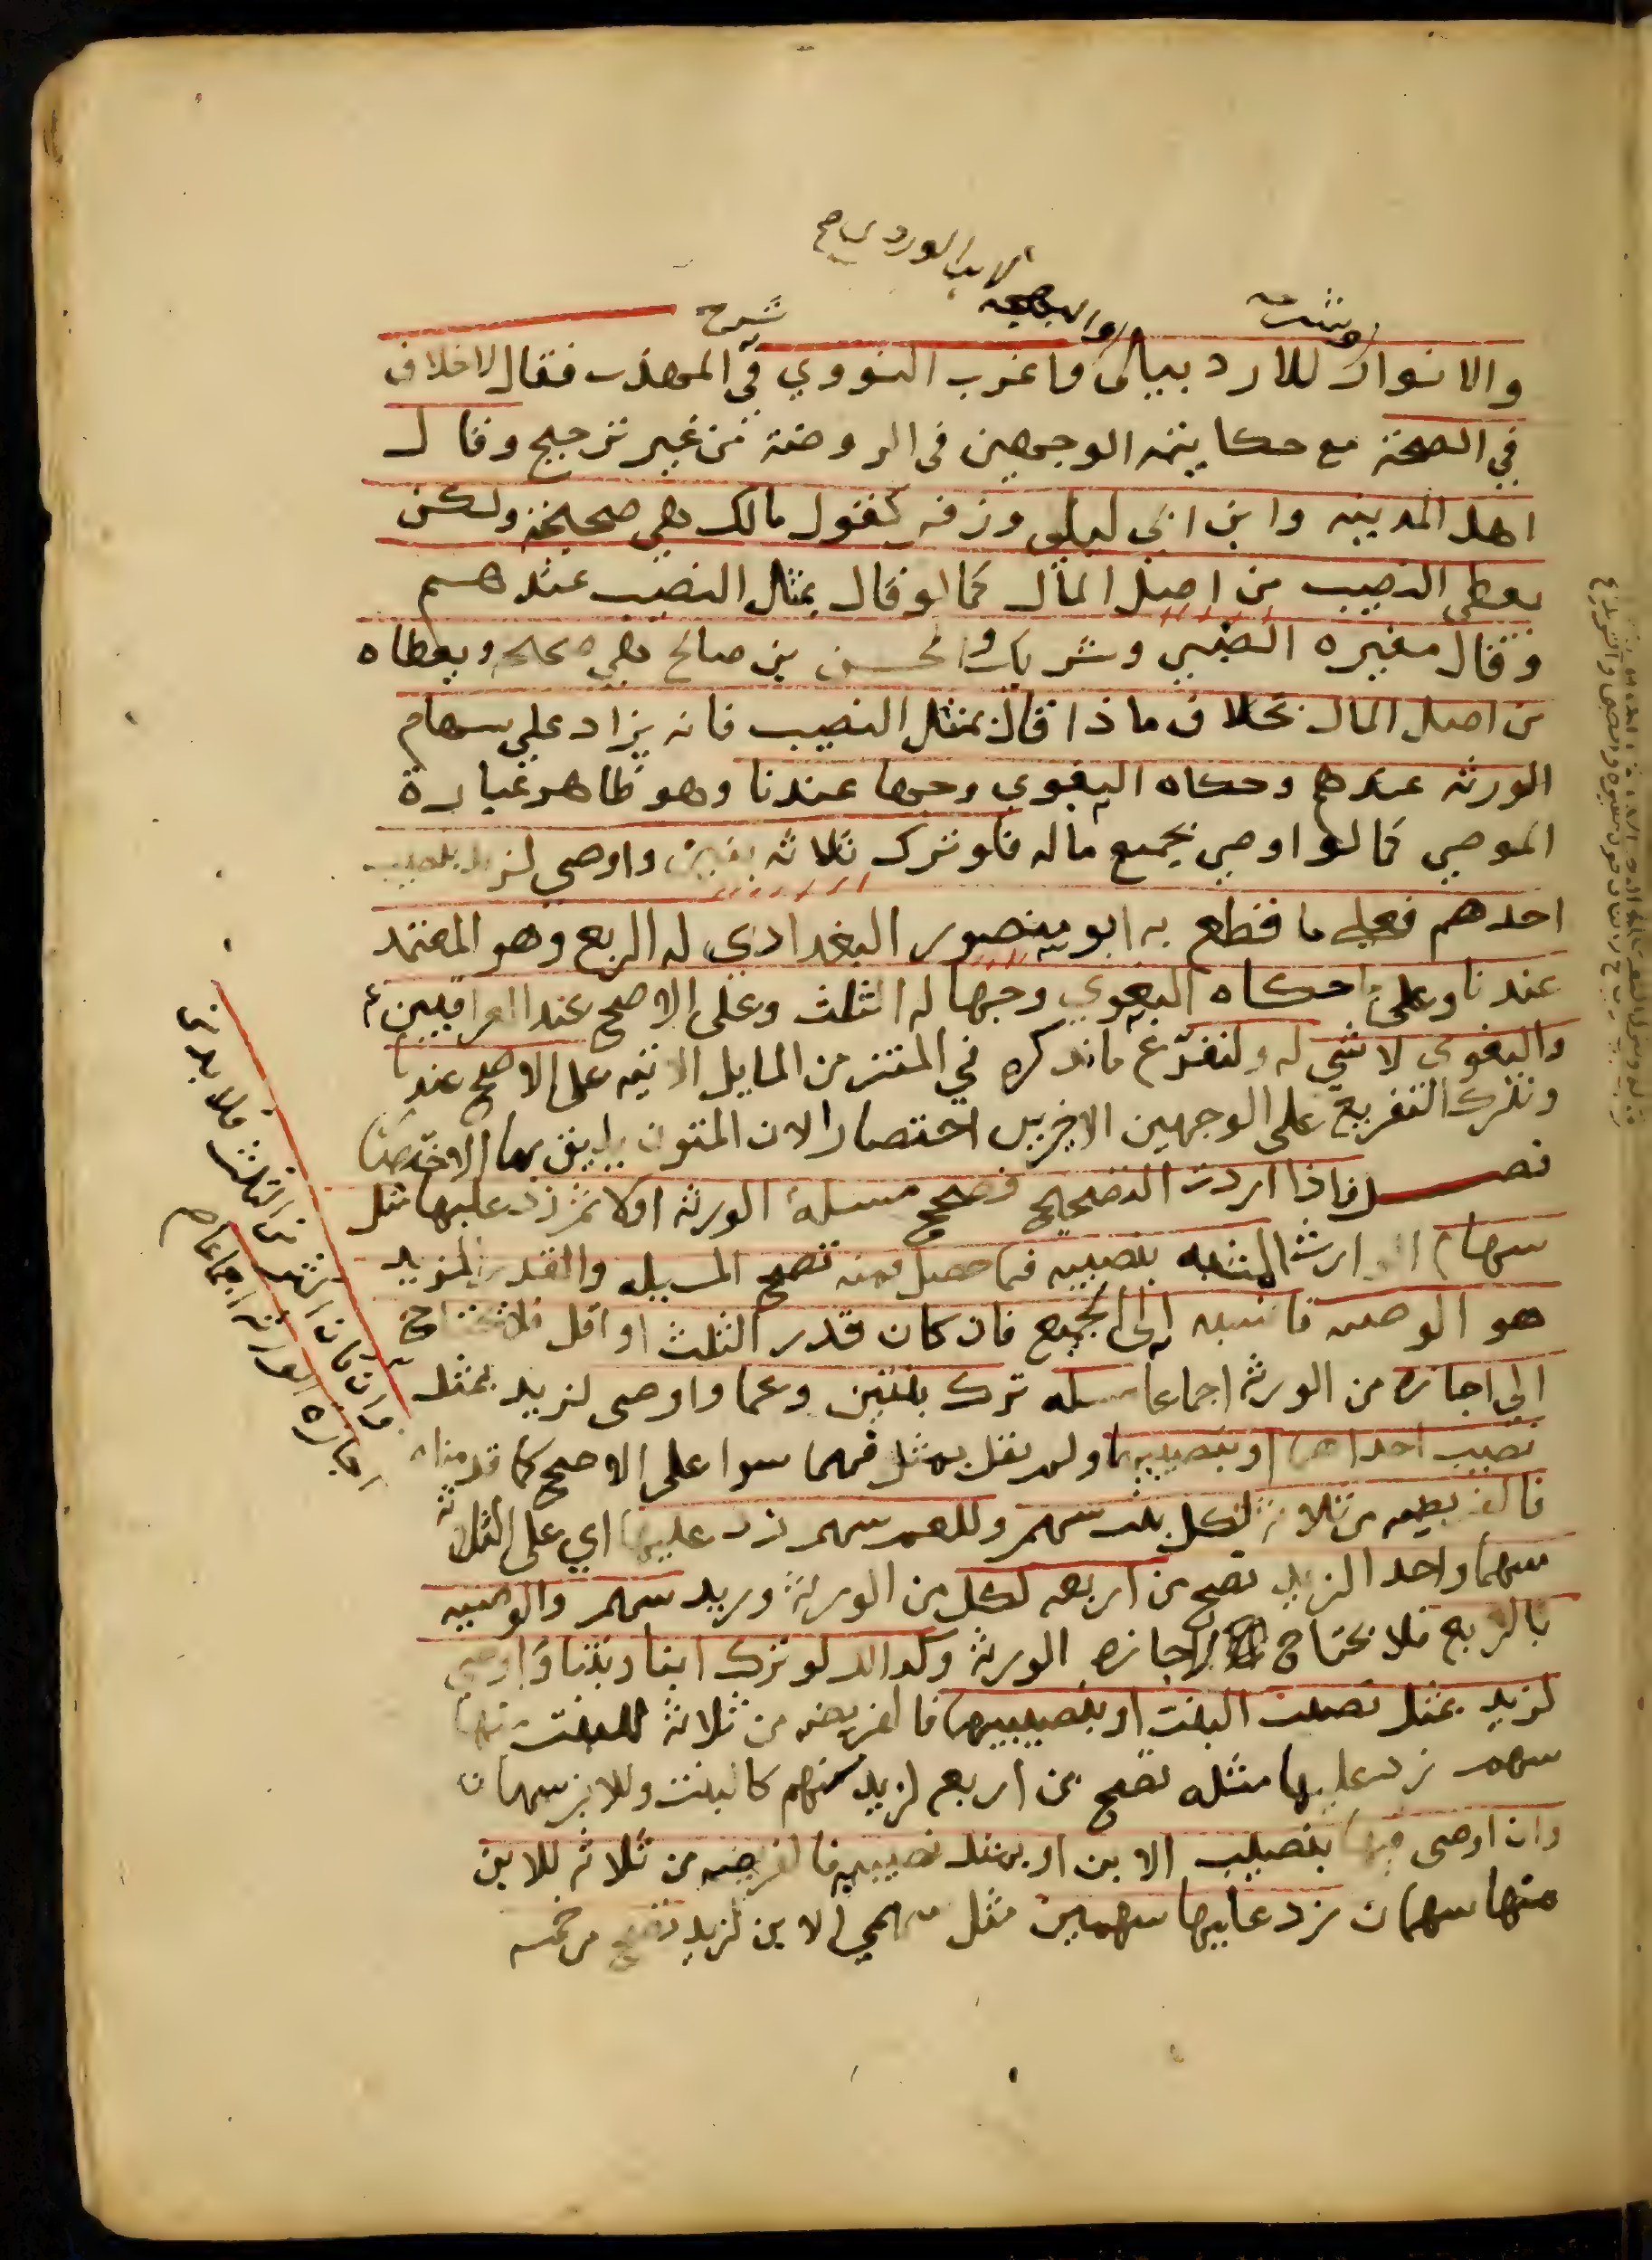 لابن الوردي صح
والبهجة
شرح
والانوار للاردبيلي واغرب النووي في المهذب فقال لا خلاف
في الصحة مع حكايته الوجهين في الروضة من غير ترجيح وقال
اهل المدينه وابن ابى ليلى وزفر كقول مالك هي صحيحة ولكن
يعطى النصيب من اصل المال كما لو قال بمثل النصيب عندهم
وقال مغيره الضبي وشريك والحسن بن صالح هي صحيحه ويعطاه
من اصل المال بخلاف ما ذا قال بمثل النصيب فانه يزاد على سهام
الورثه عندهم وحكاه البغوي وجها عندنا وهو ظاهر عبارة
الموصي كما لو اوصي بجميع ماله فلو ترك ثلاثه بنين واوصي لزيد بنصيب
احدهم فعلى ما قطع به ابو منصور البغدادي له الربع وهو المعتمد
عندنا وعلى ما حكاه البغوي وجها له الثلث وعلى الاصح عند العراقيين
والبغوي لا شي له ولنفرع ما نذكره في المتن من المسايل الاتيه على الاصح عندنا
ونترك التفريع على الوجهين الاخرين اختصارا لان المتون يليق بها الاختصار
فصل فاذا اردت التصحيح فصحح مسلة الورثه اولا ثم زد عليها مثل
سهام الوارث المشبه بنصيبه فما حصل فمنه تصح المسيله والقدر المزيد
هو الوصيه فانسبه الى الجميع فان كان قدر الثلث او اقل فلا تحتاج
الى اجازه من الورثه اجماعا مسله ترك بنتين وعما واوصى لزيد بمثل
نصيب احداهما او بنصيبها ولم يقل بمثل فهما سوا على الاصح كما قدمناه
فالفريضه من ثلاثة لكل بنت سهم وللعم سهم زد عليها اي على الثلاثة
سهما واحدا لزيد تصح من اربعه لكل من الورثة وزيد سهم والوصيه
بالربع فلا تحتاج لاجازه الورثه وكذا لو ترك ابنا وبنتا واوصي
لزيد بمثل نصيب البنت او بنصيبها فالفريضه من ثلاثة للبنت منها
سهم زد عليها مثله تصح من اربع لزيد سهم كالبنت وللابن سهمان
وان اوصى فيها بنصيب الابن او بمثل نصيبه فالفريضه من ثلاثه للابن
منها سهمان زد عليها سهمين مثل سهمي الابن لزيد تصح من خمسه
وان كان اكثر من الثلث فلا بد من
اجازه الورثه اجماعا صح